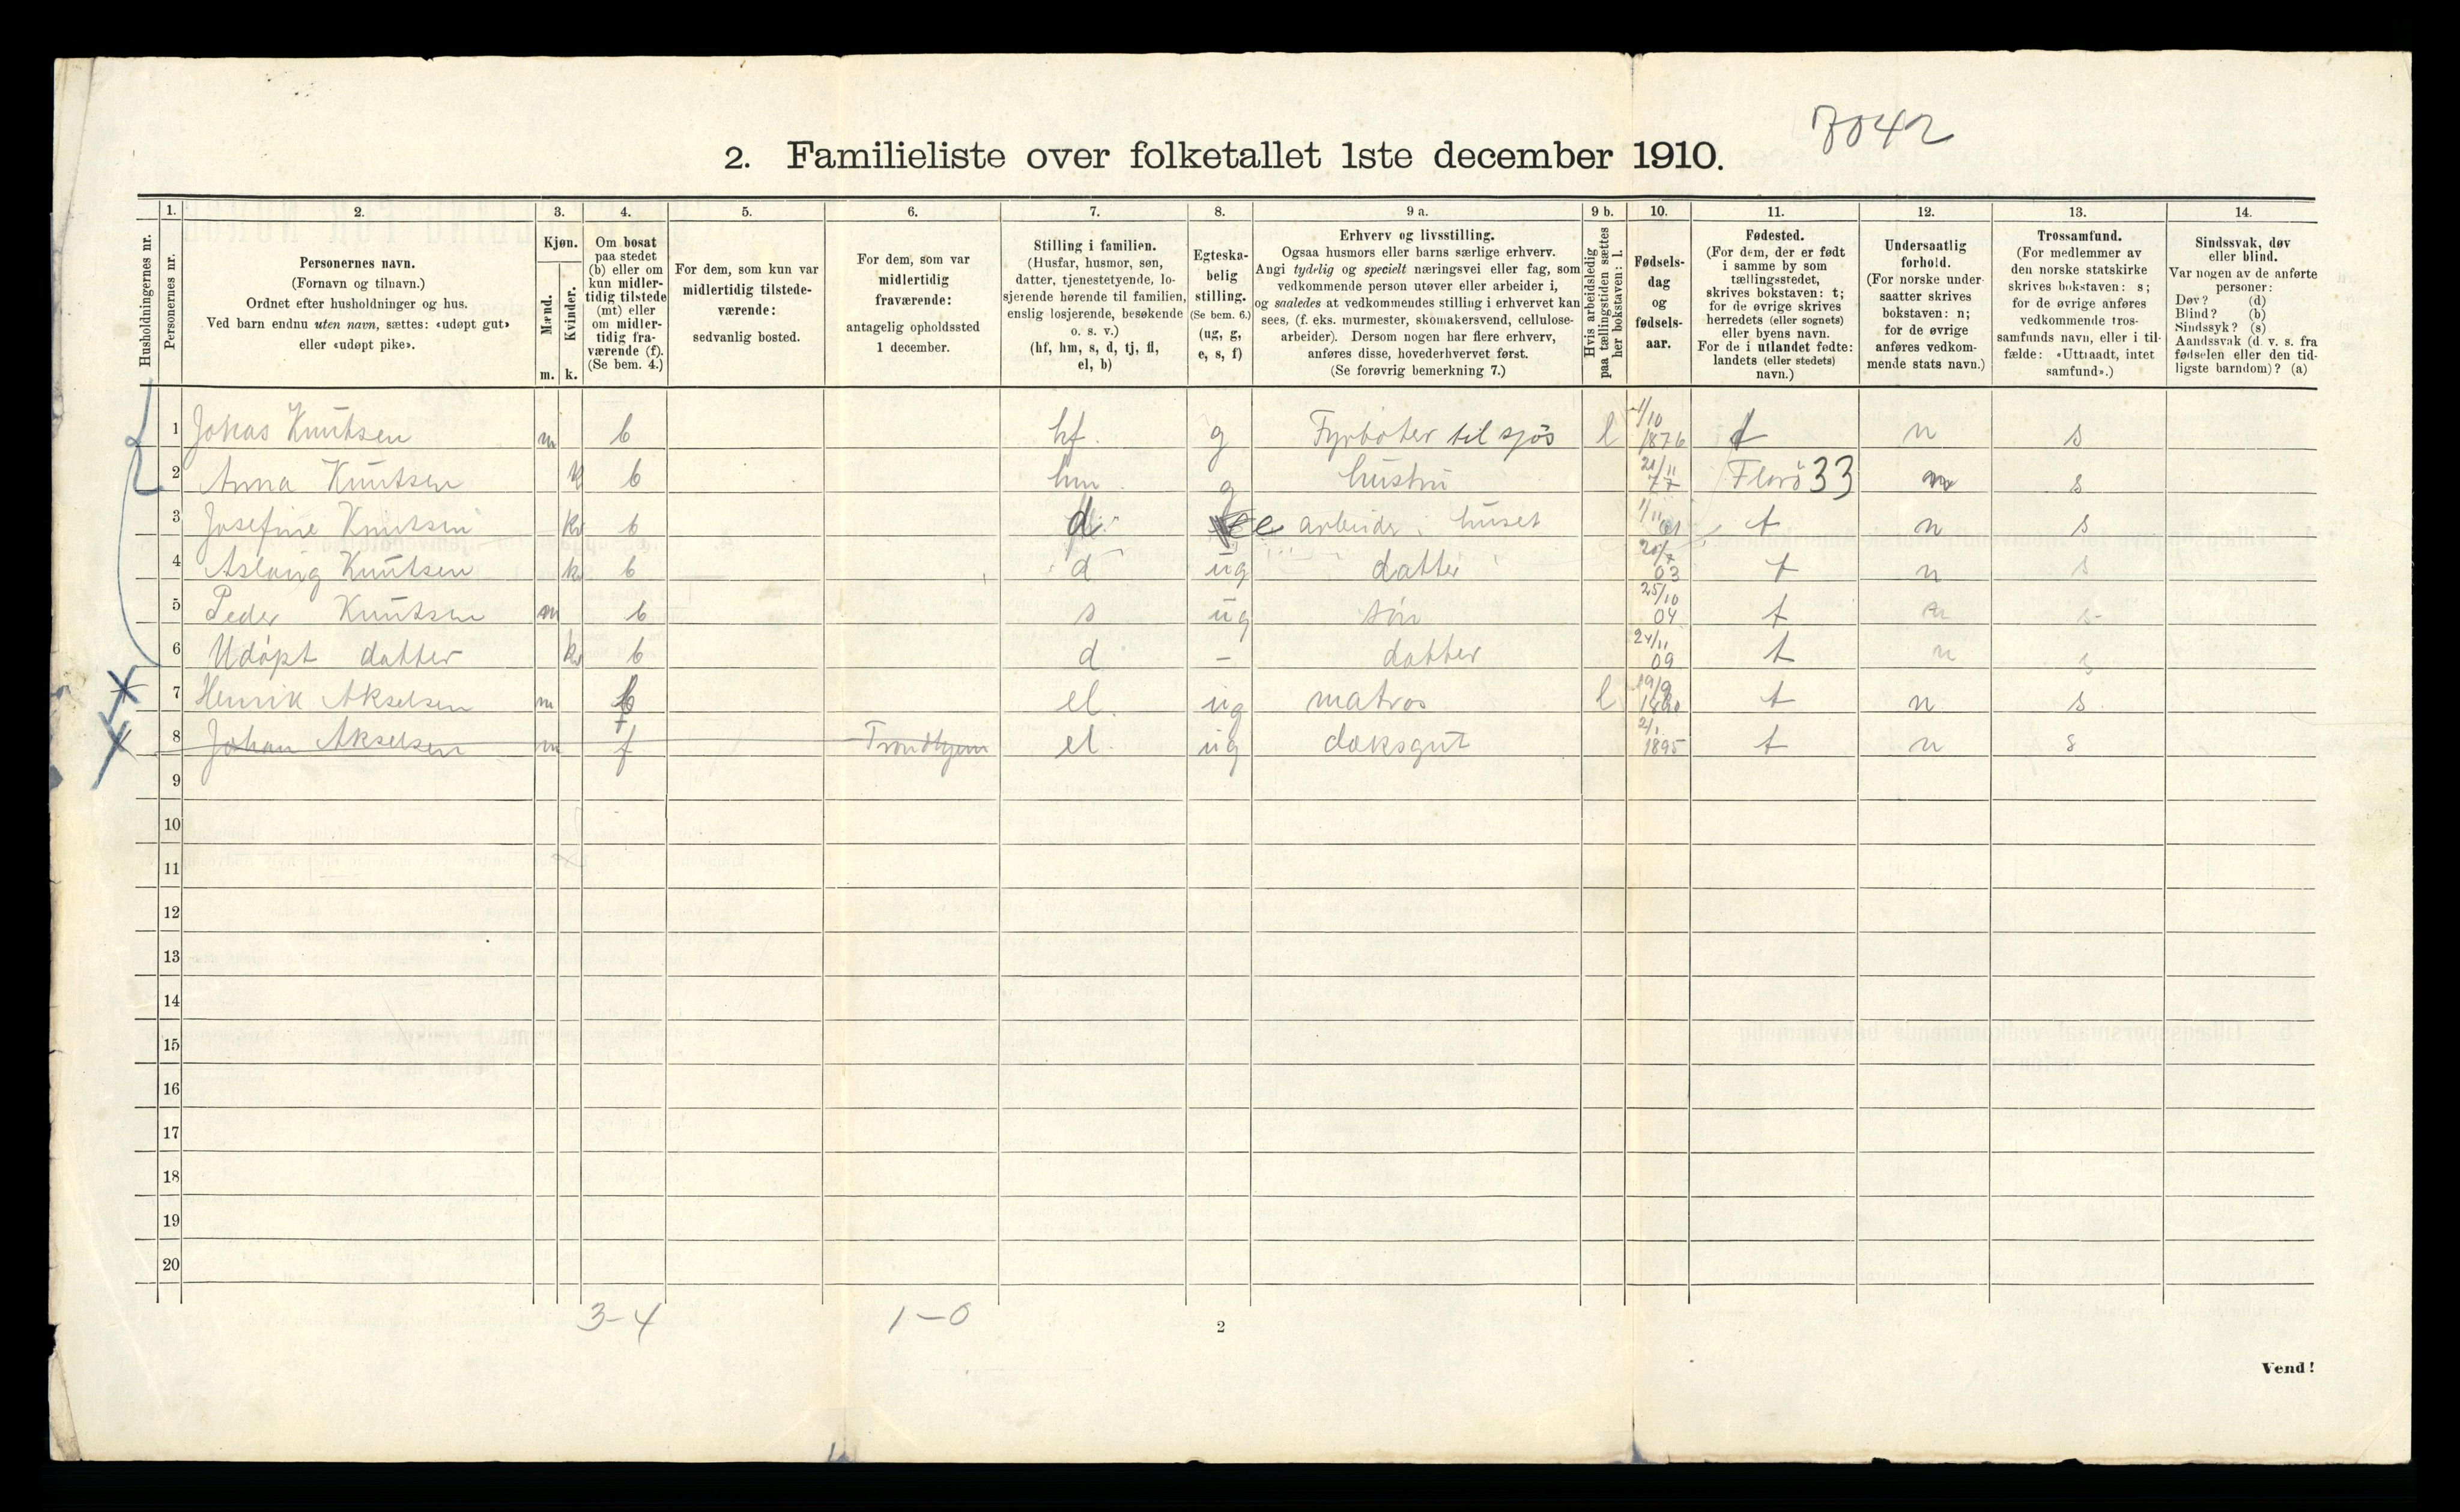 7042
2. Familieliste over folketallet 1ste december 1910.
Husholdningernes nr.
1.
Personernes nr.
2.
Personernes navn.
(Fornavn og tilnavn.)
Ordnet efter husholdninger og hus.
Ved barn endnu uten navn, sættes: «udøpt gut»
eller «udøpt pike».
3.
Kjøn.
Mænd.
Kvinder.
m. k.
4.
Om bosat
paa stedet
(b) eller om
kun midler-
tidig tilstede
(mt) eller
om midler-
tidig fra-
værende (f).
(Se bem. 4.)
5.
For dem, som kun var
midlertidig tilstede-
værende:
sedvanlig bosted.
6.
For dem, som var
midlertidig
fraværende:
antagelig opholdssted
1 december.
7.
Stilling i familien.
(Husfar, husmor, søn,
datter, tjenestetyende, lo-
sjerende hørende til familien,
enslig losjerende, besøkende
o. s. v.)
(hf, hm, s, d, tj, fl,
el, b)
8.
Egteska-
belig
stilling.
(Se bem. 6.)
(ug, g,
e, s, f)
9 a.
Erhverv og livsstilling.
Ogsaa husmors eller barns særlige erhverv.
Angi tydelig og specielt næringsvei eller fag, som
vedkommende person utøver eller arbeider i,
og saaledes at vedkommendes stilling i erhvervet kan
sees, (f. eks. murmester, skomakersvend, cellulose-
arbeider). Dersom nogen har flere erhverv,
anføres disse, hovederhvervet først.
(Se forøvrig bemerkning 7.)
9 b.
Hvis arbeidsledig
paa tællingstiden sættes
her bokstaven: l.
10.
Fødsels-
dag
og
fødsels-
aar.
11.
Fødested.
(For dem, der er født
i samme by som
tællingsstedet,
skrives bokstaven: t;
for de øvrige skrives
herredets (eller sognets)
eller byens navn.
For de i utlandet fødte:
landets (eller stedets)
navn.)
12.
Undersaatlig
forhold.
(For norske under-
saatter skrives
bokstaven: n;
for de øvrige
anføres vedkom-
mende stats navn.)
13.
Trossamfund.
(For medlemmer av
den norske statskirke
skrives bokstaven: s;
for de øvrige anføres
vedkommende tros-
samfunds navn, eller i til-
fælde: «Uttraadt, intet
samfund».)
14.
Sindssvak, døv
eller blind.
Var nogen av de anførte
personer:
Døv? (d)
Blind? (b)
Sindssyk? (s)
Aandssvak (d. v. s. fra
fødselen eller den tid-
ligste barndom)? (a)
1 Johas Knutsen m b hf. g Fyrbøter til sjøs l 1/10 1876 t n s
2 Anna Knutsen k b hm. g hustru 21/11 77 Florö 33 n s
3 Josefine Knutsen k b d. e arbeider i huset 1/11 01 t n s
4 Aslaug Knutsen k b d ug datter 20/7 03 t n s
5 Peder Knutsen m b s ug søn 25/10 04 t n s
6 Udøpt datter k b d – datter 24/11 09 t n s
7 Henrik Akselsen m f el. ug matros l 19/9 t n s
8 Johan Akselsen m f Trondhjem el. ug dæksgut 2/1 1895 t n s
9
10
11
12
13
14
15
16
17
18
19
20
3–4 1–0
2
Vend!